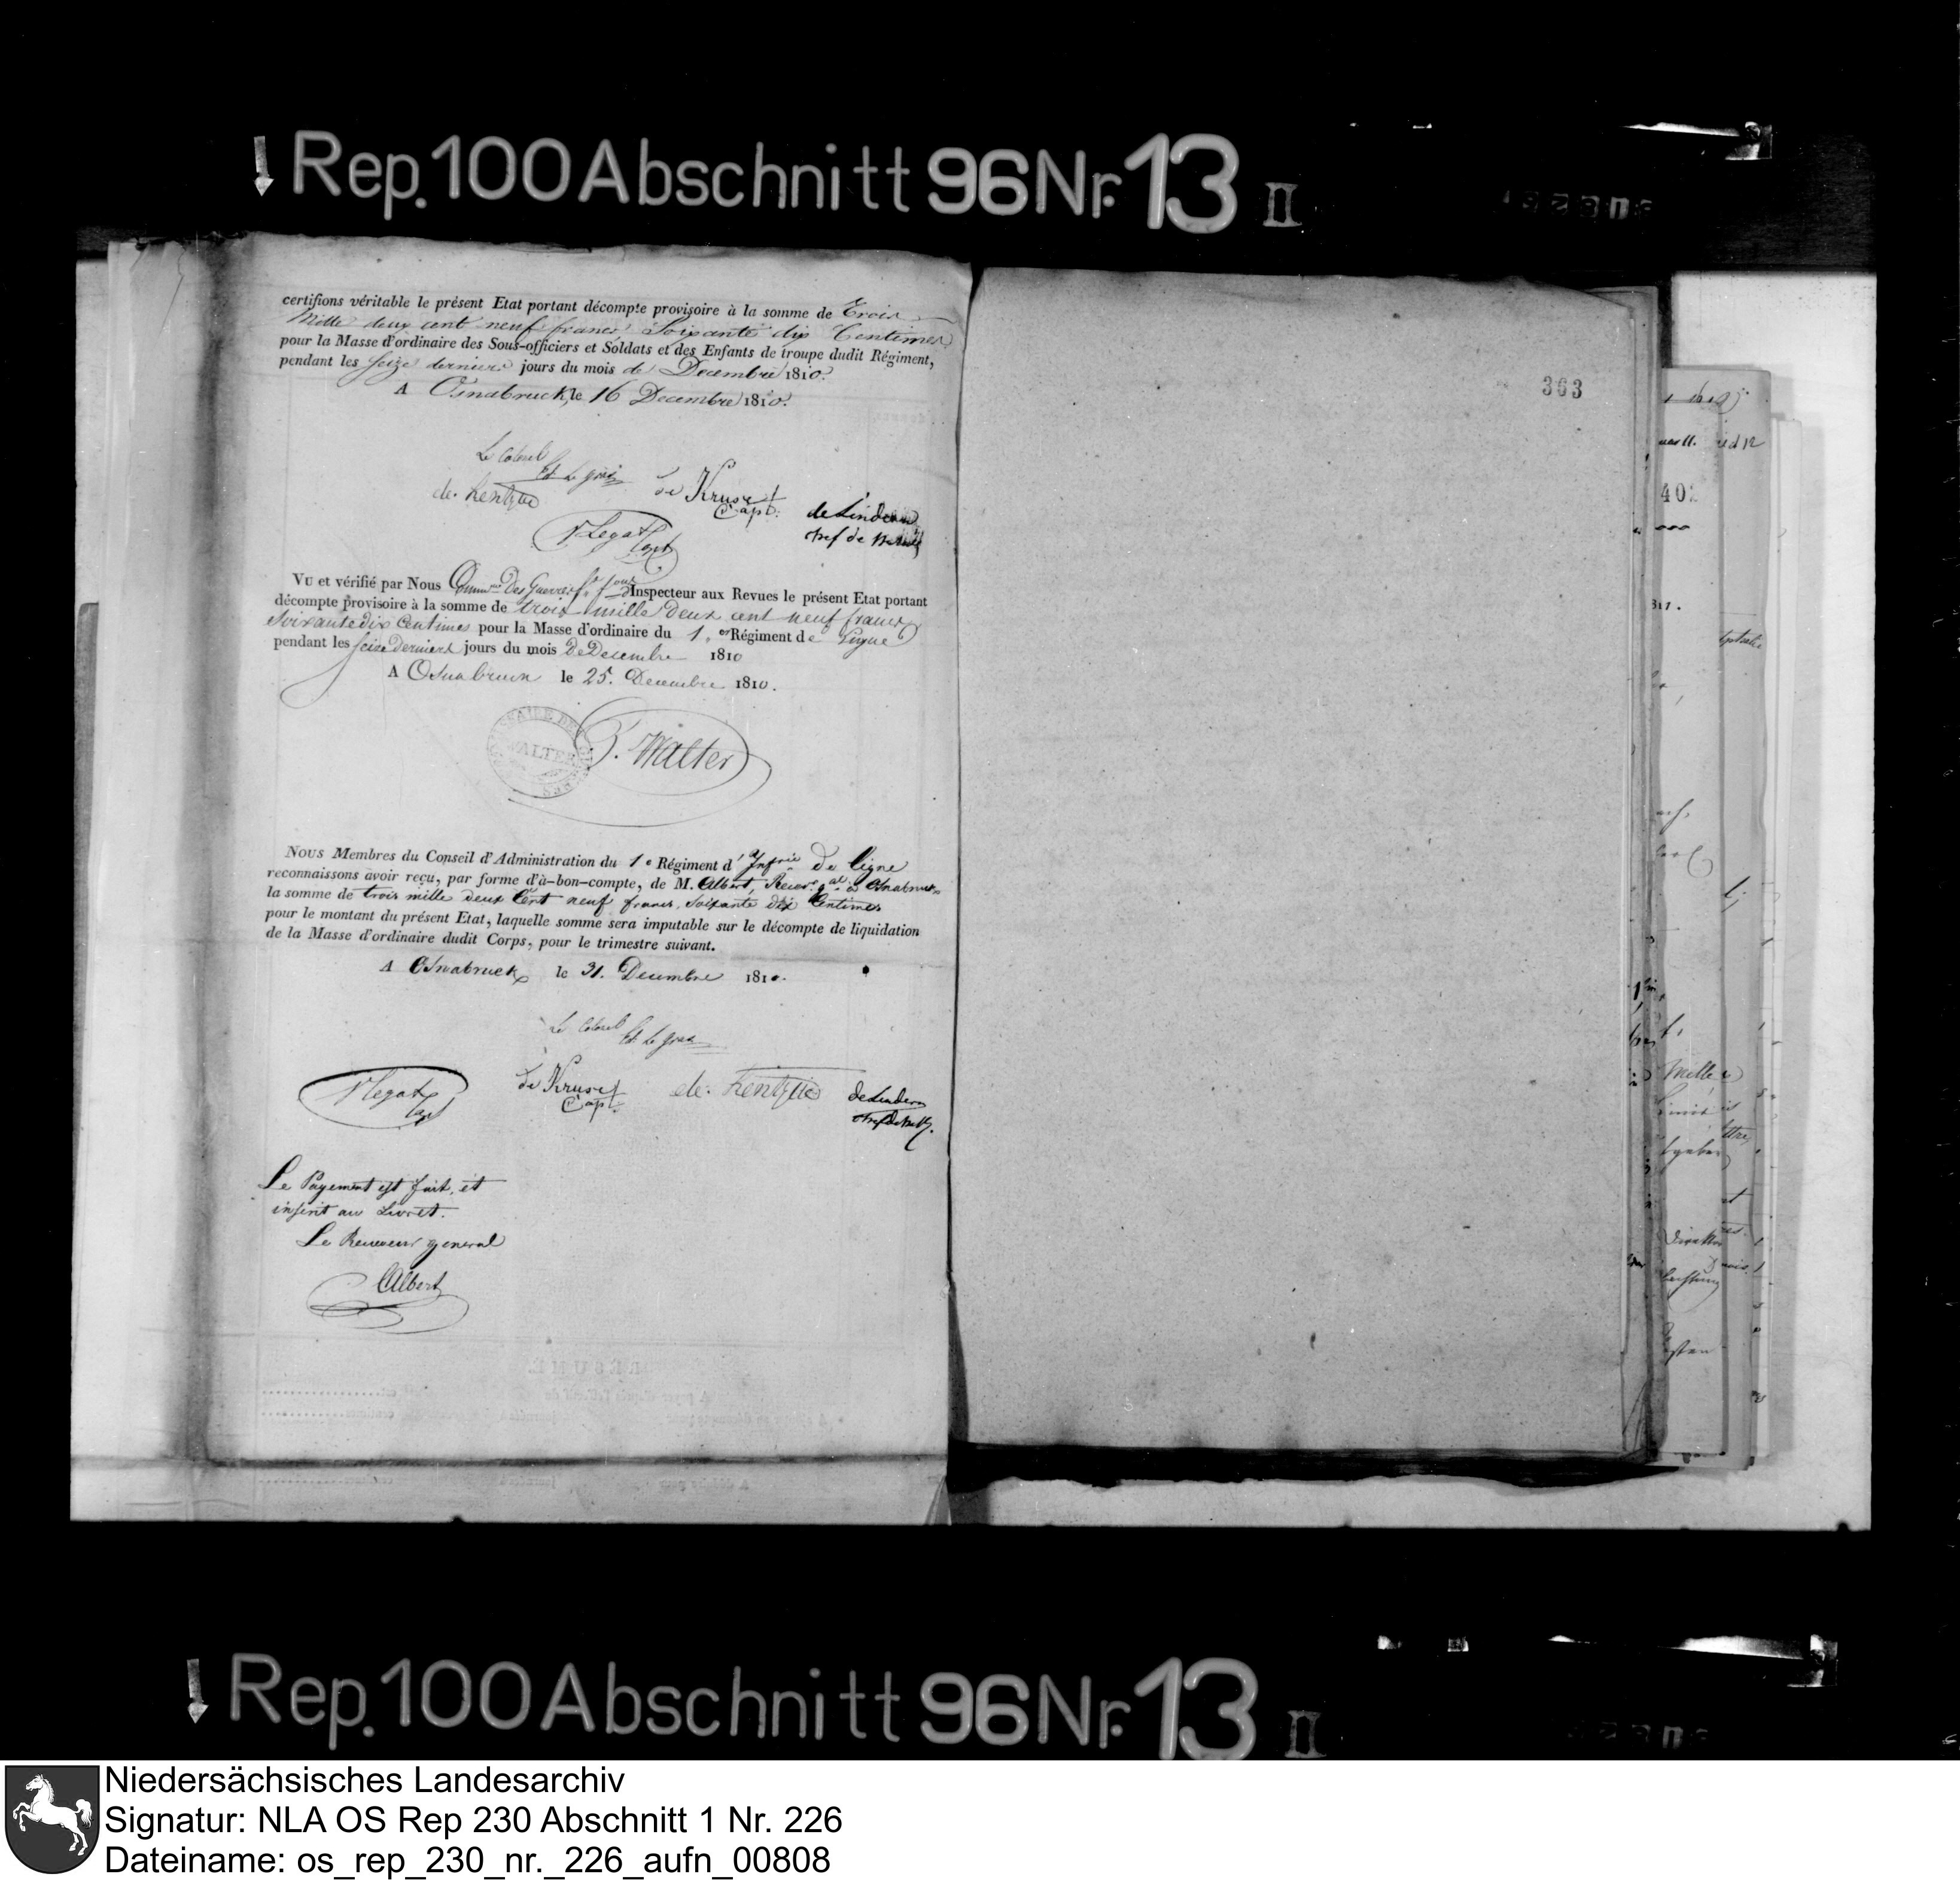 Rep. 100 Abschnitt 96 Nr. 13 II
certifions véritable le présent Etat portant décompte provisoire à la somme de Trois
Mille deux cent neuf francs Soixante dix Centimes
pour la Masse d'ordinaire des Sous-officiers et Soldats et des Enfants de troupe dudit Régiment,
pendant les seize derniers jours du mois de Decembre 1810.
A Osnabruck, le 16 Decembre 1810.
Le Colonel
de Kruse
Capt.
de Lindern
chef de
Legat
Capt
VU et vérifié par Nous Des Guerres Inspecteur aux Revues le présent Etat portant
décompte provisoire à la somme de trois mille Deux cent neuf francs
Soixante dix Centimes pour la Masse d'ordinaire du 1.er Régiment de Ligne
pendant les seize Derniers jours du mois De Decembre 1810
A Osnabruck le 25. Decembre 1810.
WALTER
Walter
NOUS Membres du Conseil d'Administration du 1e Régiment d'Infrie De Ligne
reconnaissons avoir reçu, par forme d'à-bon-compte, de M. Albert, Recevr gal à Osnabruck
la somme de trois mille deux Cent neuf francs, Soixante dix Centimes
pour le montant du présent Etat, laquelle somme sera imputable sur le décompte de liquidation
de la Masse d'ordinaire dudit Corps, pour le trimestre suivant.
A Osnabruck le 31. Decembre 1810.
Le Colonel
Legat
Capt
de Kruse
Capt.
de Lindern
Le Payement est fait, et
inscrit au Livret.
Le Receveur general
Albert
363
Rep. 100 Abschnitt 96 Nr. 13 II
Niedersächsisches Landesarchiv
Signatur: NLA OS Rep 230 Abschnitt 1 Nr. 226
Dateiname: os_rep_230_nr._226_aufn_00808